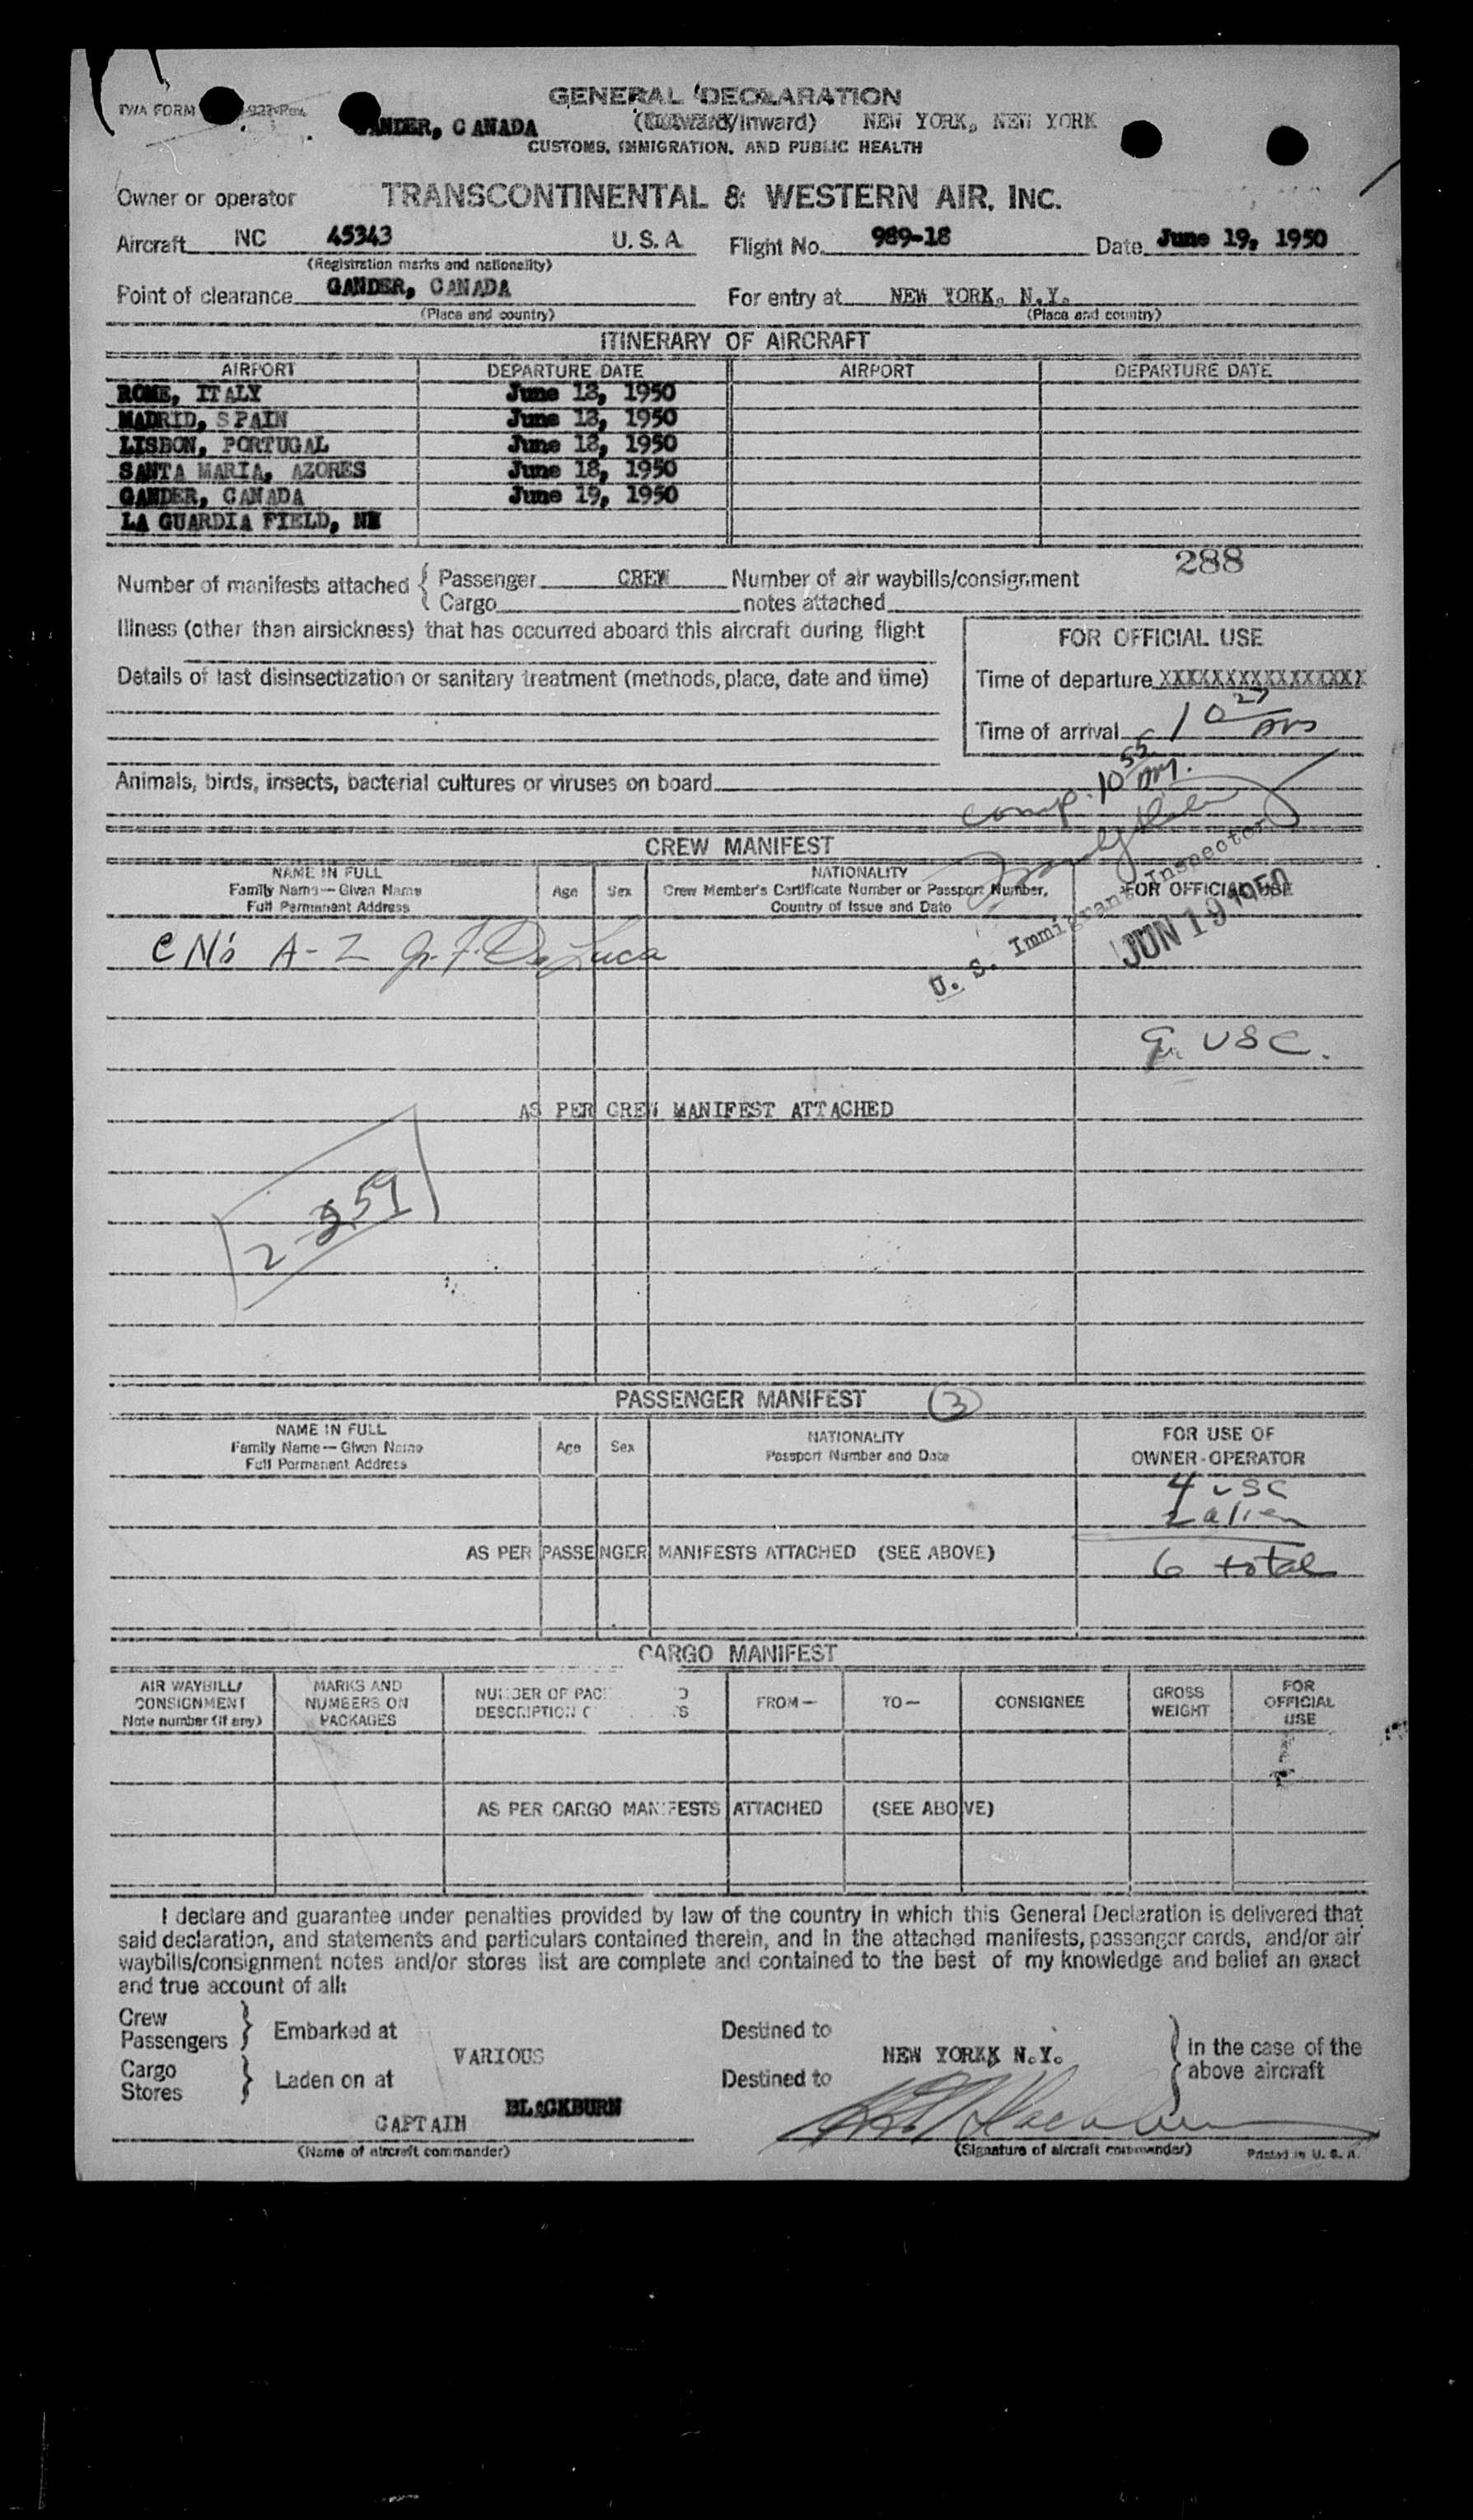 TWA FORM 927-Rev.
GENERAL DECLARATION
GANDER, CANADA (Outward/Inward) NEW YORK, NEW YORK
CUSTOMS, IMMIGRATION, AND PUBLIC HEALTH
Owner or operator TRANSCONTINENTAL & WESTERN AIR, INC.
Aircraft NC 45343 U. S. A Flight No. 989-18 Date June 19, 1950
(Registration marks and nationality)
Point of clearance GANDER, CANADA For entry at NEW YORK, N.Y.
(Place and country) (Place and country)
ITINERARY OF AIRCRAFT
AIRPORT DEPARTURE DATE AIRPORT DEPARTURE DATE
ROME, ITALY June 18, 1950
MADRID, SPAIN June 18, 1950
LISBON, PORTUGAL June 18, 1950
SANTA MARIA, AZORES June 18, 1950
GANDER, CANADA June 19, 1950
LA GUARDIA FIELD,
288
Number of manifests attached { Passenger CREW Number of air waybills/consignment
Cargo notes attached
Illness (other than airsickness) that has occurred aboard this aircraft during flight
FOR OFFICIAL USE
Details of last disinsectization or sanitary treatment (methods, place, date and time)
Time of departure XXXXXXXXXXXXXXXX
Time of arrival 10 27 am
comp. 10 55 am.
Animals, birds, insects, bacterial cultures or viruses on board
U. S. Immigrant Inspector
JUN 19 1950
CREW MANIFEST
NAME IN FULL NATIONALITY
Family Name — Given Name Age Sex Crew Member's Certificate Number or Passport Number, FOR OFFICIAL USE
Full Permanent Address Country of Issue and Date
C N's A-Z De Luca
9 USC.
AS PER CREW MANIFEST ATTACHED
PASSENGER MANIFEST 3
NAME IN FULL NATIONALITY FOR USE OF
Family Name — Given Name Age Sex Passport Number and Date OWNER-OPERATOR
Full Permanent Address
4 USC
2 alien
AS PER PASSENGER MANIFESTS ATTACHED (SEE ABOVE) 6 total
CARGO MANIFEST
AIR WAYBILL/ MARKS AND FOR
CONSIGNMENT NUMBERS ON NUMBER OF PAC FROM— TO— CONSIGNEE GROSS OFFICIAL
Note number (if any) PACKAGES DESCRIPTION WEIGHT USE
AS PER CARGO MANIFESTS ATTACHED (SEE ABOVE)
I declare and guarantee under penalties provided by law of the country in which this General Declaration is delivered that
said declaration, and statements and particulars contained therein, and in the attached manifests, passenger cards, and/or air
waybills/consignment notes and/or stores list are complete and contained to the best of my knowledge and belief an exact
and true account of all:
Crew
Passengers } Embarked at Destined to } In the case of the
VARIOUS NEW YORKK N.Y. above aircraft
Cargo
Stores } Laden on at Destined to
CAPTAIN BLACKBURN
(Name of aircraft commander) (Signature of aircraft commander) Printed in U. S. A.